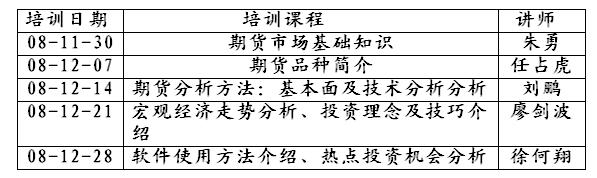 培训日期 培训课程 讲师
08-11-30 期货市场基础知识 朱勇
08-12-07 期货品种简介 任占虎
08-12-14 期货分析方法：基本面及技术分析分析 刘鹏
08-12-21 宏观经济走势分析、投资理念及技巧介 廖剑波
绍
08-12-28 软件使用方法介绍、热点投资机会分析 徐何翔